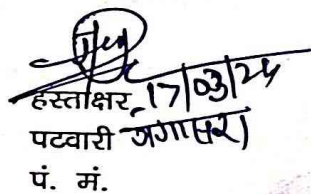 हस्ताक्षर 17/03/24
पटवारी
पं. मं.